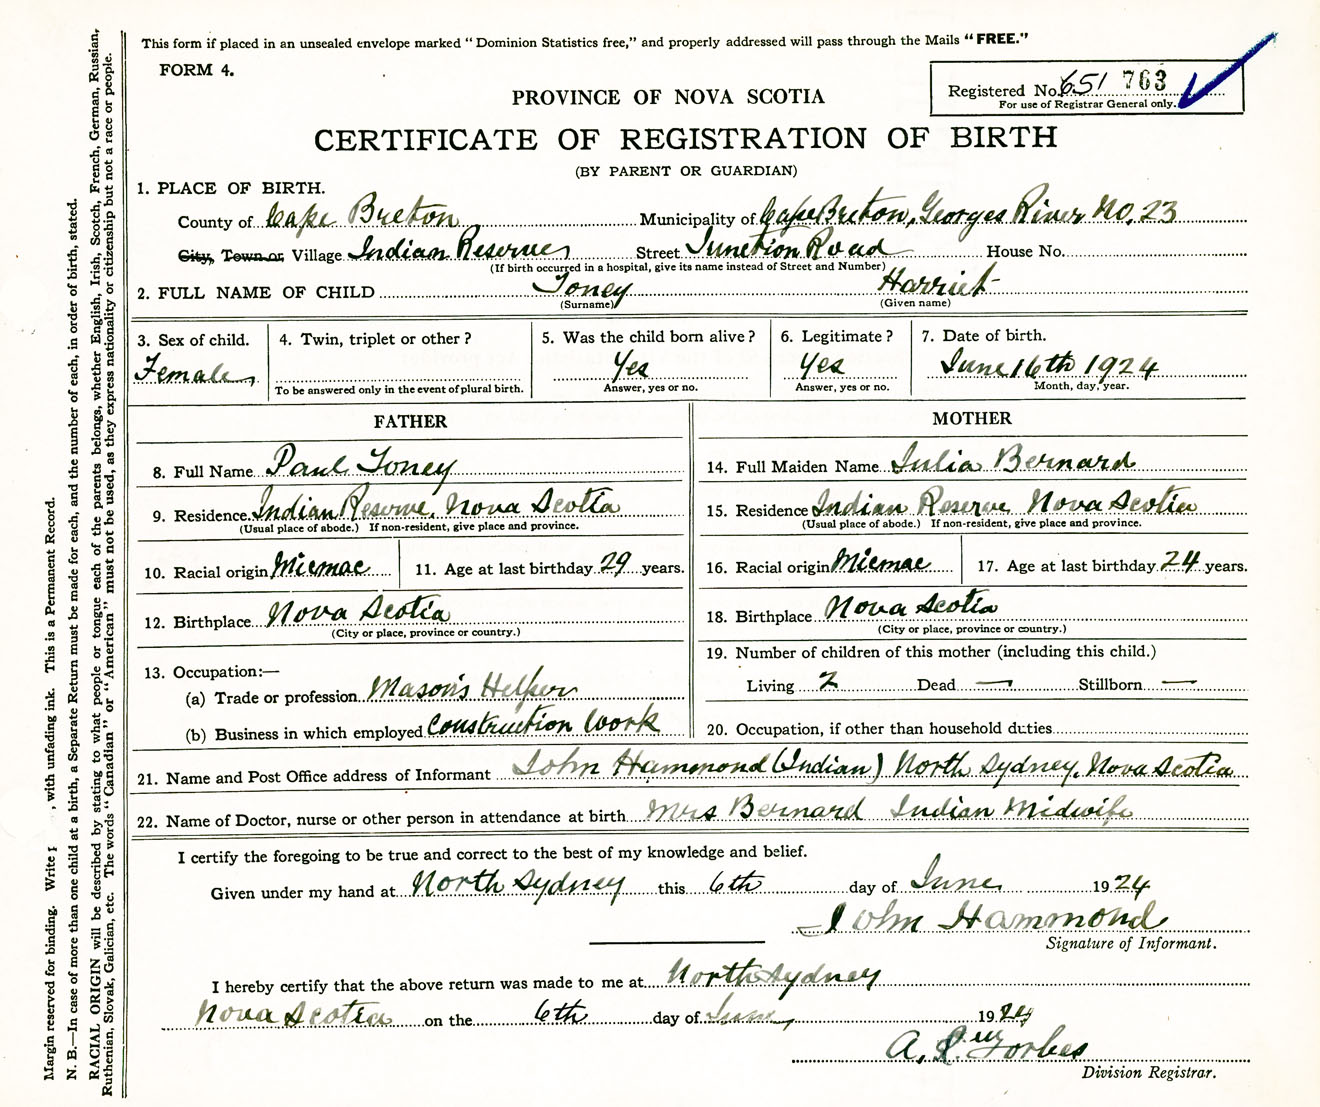 This form if placed in an unsealed envelope marked "Dominion Statistics free," and properly addressed will pass through the Mails "FREE."
FORM 4.
Registered No. 651 763
For use of Registrar General only.
PROVINCE OF NOVA SCOTIA
CERTIFICATE OF REGISTRATION OF BIRTH
(BY PARENT OR GUARDIAN)
1. PLACE OF BIRTH.
County of Cape Breton Municipality of Cape Breton, Georges River No. 23
City, Town or Village Indian Reserve Street Junction Road House No.
(If birth occurred in a hospital, give its name instead of Street and Number)
2. FULL NAME OF CHILD Toney Harriet
(Surname) (Given name)
3. Sex of child. 4. Twin, triplet or other? 5. Was the child born alive? 6. Legitimate? 7. Date of birth.
Female Yes Yes June 16th 1924
To be answered only in the event of plural birth. Answer, yes or no. Answer, yes or no. Month, day, year.
FATHER
8. Full Name Paul Toney
9. Residence. Indian Reserve, Nova Scotia
(Usual place of abode.) If non-resident, give place and province.
10. Racial origin Micmac 11. Age at last birthday 29 years.
12. Birthplace Nova Scotia
(City or place, province or country.)
13. Occupation:—
(a) Trade or profession Mason's Helper
(b) Business in which employed Construction Work
MOTHER
14. Full Maiden Name Julia Bernard
15. Residence Indian Reserve Nova Scotia
(Usual place of abode.) If non-resident, give place and province.
16. Racial origin Micmac 17. Age at last birthday 24 years.
18. Birthplace Nova Scotia
(City or place, province or country.)
19. Number of children of this mother (including this child.)
Living 2 Dead — Stillborn —
20. Occupation, if other than household duties
21. Name and Post Office address of Informant John Hammond (Indian) North Sydney, Nova Scotia
22. Name of Doctor, nurse or other person in attendance at birth Mrs Bernard Indian Midwife
I certify the foregoing to be true and correct to the best of my knowledge and belief.
Given under my hand at North Sydney this 6th day of June 1924
John Hammond
Signature of Informant.
I hereby certify that the above return was made to me at North Sydney
Nova Scotia on the 6th day of June 1924
A. Forbes
Division Registrar.
Margin reserved for binding. Write , with unfading ink. This is a Permanent Record.
N. B.—In case of more than one child at a birth, a Separate Return must be made for each, and the number of each, in order of birth, stated.
RACIAL ORIGIN will be described by stating to what people or tongue each of the parents belongs, whether English, Irish, Scotch, French, German, Russian,
Ruthenian, Slovak, Galician, etc. The words "Canadian" or "American" must not be used, as they express nationality or citizenship but not a race or people.